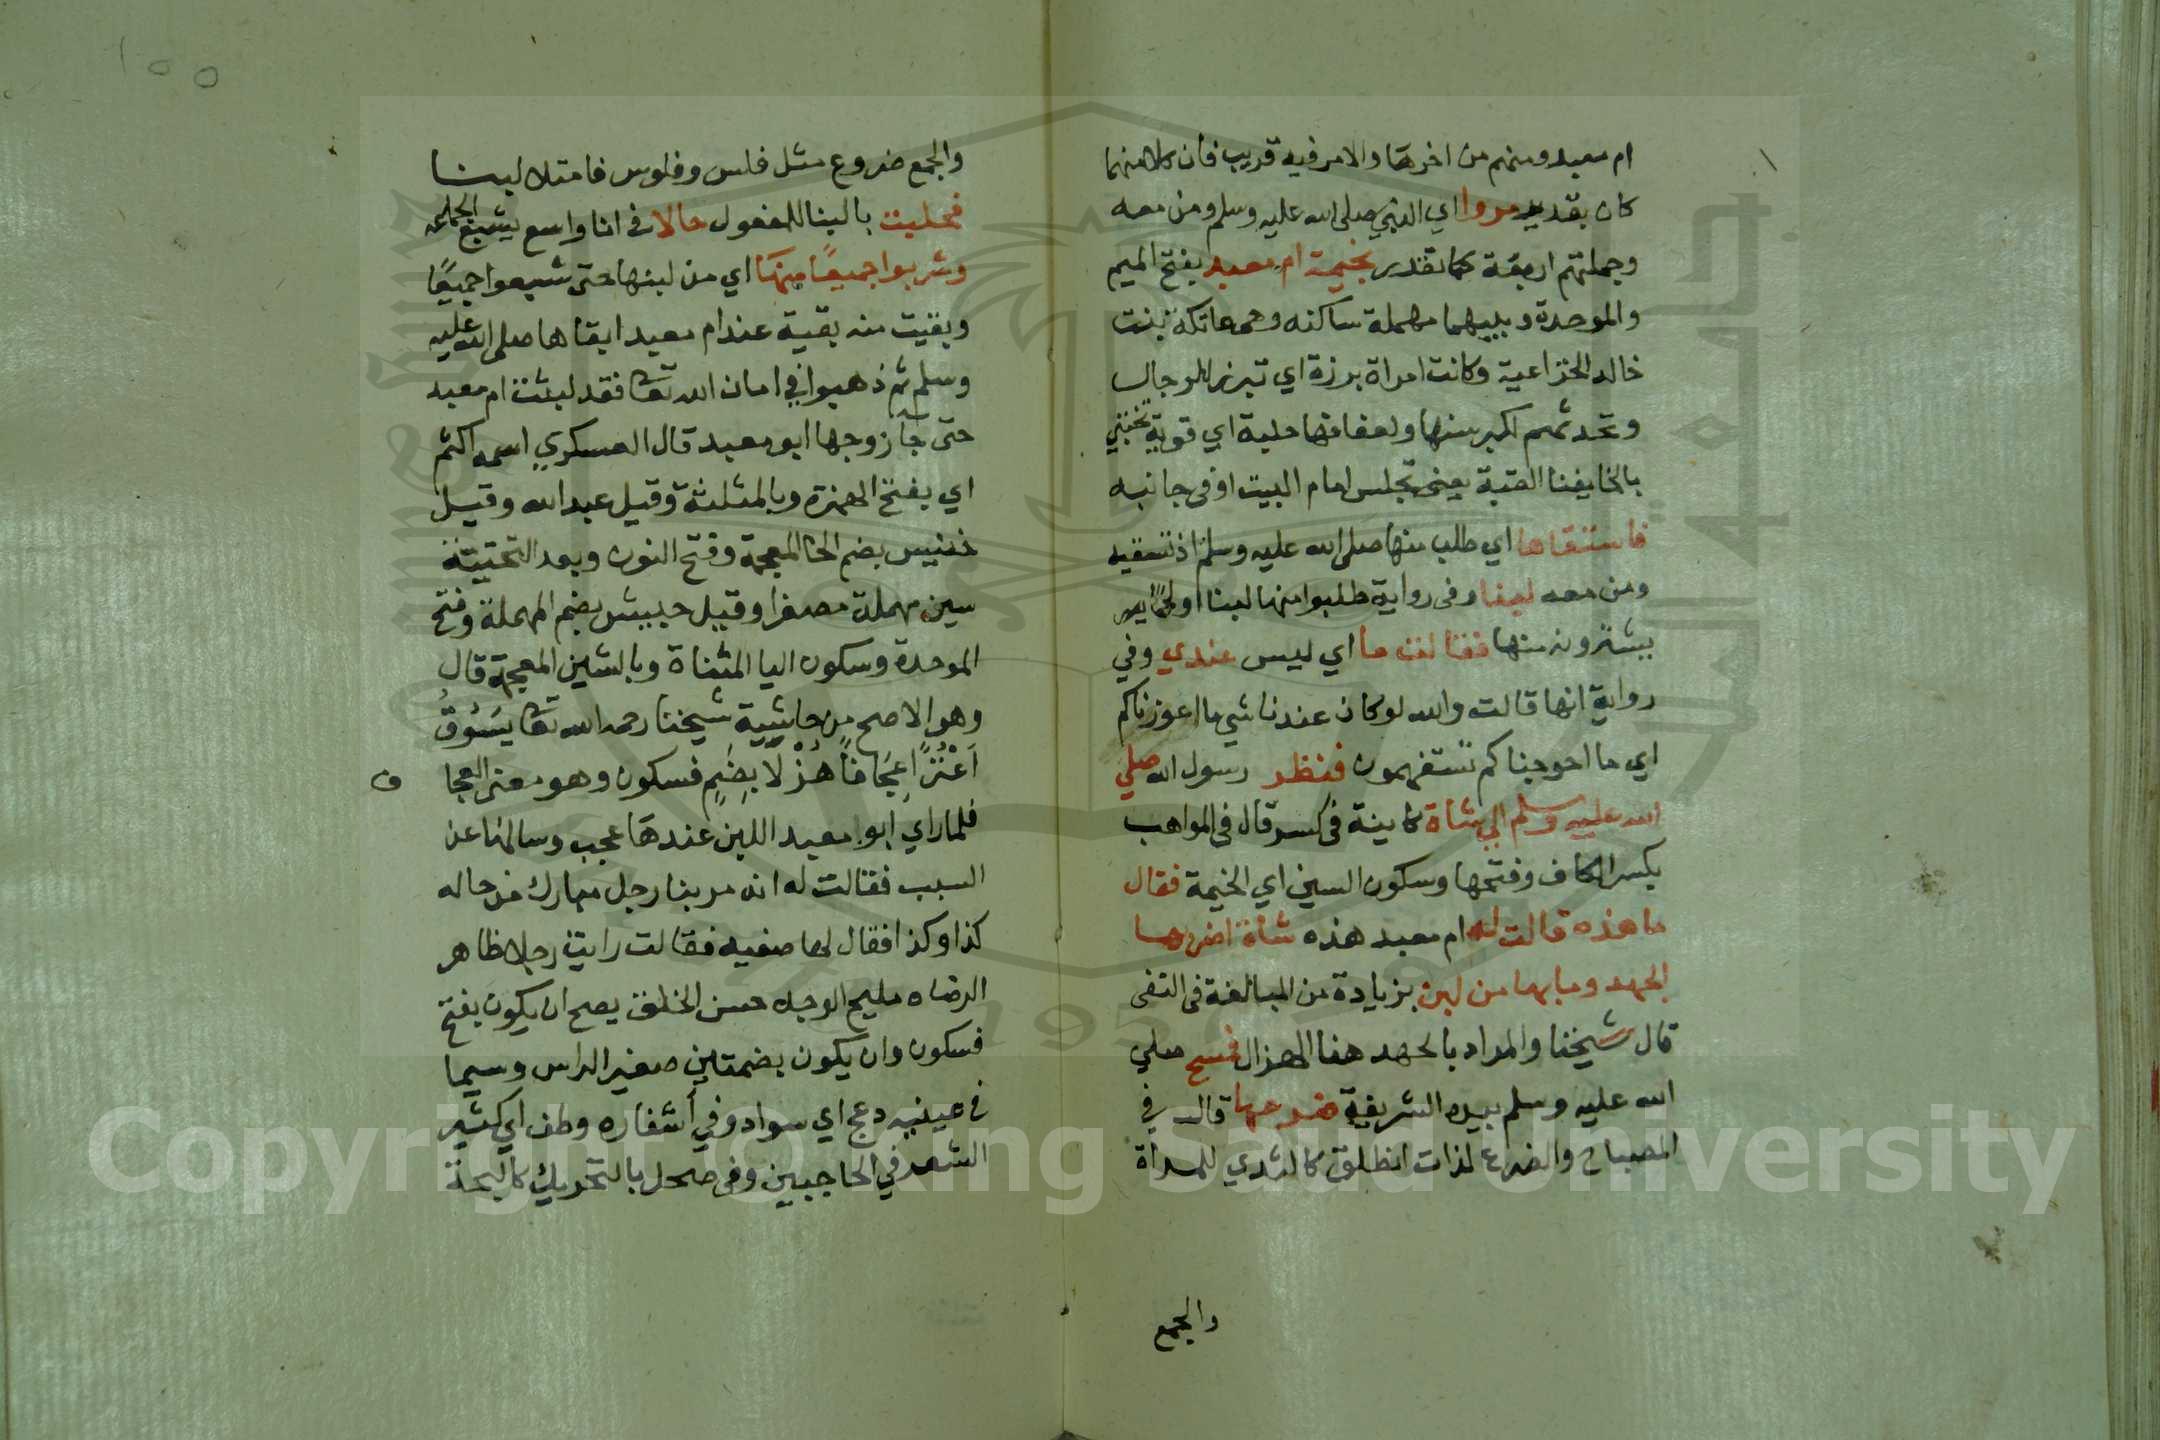 ام معبد ومنهم من اخرها والامر فيه قريب فان كلا منهما
كان بقديد مروا اي النبي صلى الله عليه وسلم ومن معه
وجملتهم اربعة كما تقدر بخيمة ام معبد بفتح الميم
والموحدة وبينهما مهملة ساكنه وهي عاتكة بنت
خالد الخزاعية وكانت امراة برزة اي تبرز للرجال
وتحدثهم لكبر سنها ولعفافها جلدة اي قوية تحتبي
بالخا بفنا القبة يعني تجلس امام البيت او في جانبه
فاستسقاها اي طلب منها صلى الله عليه وسلم اذ تسقيه
ومن معه لبنا وفي رواية طلبوا منها لبنا او لحما
يشترونه منها فقالت ما اي ليس عندي وفي
رواية انها قالت والله لو كان عندنا شي ما اعوزناكم
اي ما احوجناكم تستفهمون فنظر رسول الله صلي
الله عليه وسلم الي شاة كاينة في كسر قال في المواهب
بكسر الكاف وفتحها وسكون السين اي الخيمة فقال
ما هذه قالت له ام معبد هذه شاة اضر بها
الجهد وما بها من لبن بزيادة من المبالغة في النفي
قال شيخنا والمراد بالجهد هنا الهزال فمسح صلي
الله عليه وسلم بيده الشريفة ضرعها قال في
المصباح والضرع لذات الظلف كالثدي للمرأة
والجمع
١٥٥
والجمع ضروع مثل فلس وفلوس فامتلا لبنا
فحلبت بالبنا للمفعول حالا في انا واسع يشبع الجماعة
وشربوا جميعًا منها اي من لبنها حتى شبعوا جميعًا
وبقيت منه بقية عند ام معبد ابقاها صلى الله عليه
وسلم ثم ذهبوا في امان الله تعا فقد لبثت ام معبد
حتى جآ زوجها ابو معبد قال العسكري اسمه اكثم
اي بفتح الهمزة وبالمثلثة وقيل عبد الله وقيل
خنيس بضم الخا المعجمة وفتح النون وبعد التحتية
سين مهملة مصغرا وقيل حبيش بضم المهملة وفتح
الموحدة وسكون اليا المثناة وبالشين المعجمة قال
وهو الاصح من حاشية شيخنا رحمه الله تعا يَسُوقُ
اَعْنُزًا عِجَافًا هُزْلًا بضم فسكون وهو معنى العجا
ف
فلما راي ابو معبد اللبن عندها عجب وسالها عن
السبب فقالت له انه مر بنا رجل مبارك من حاله
كذا وكذا فقال لها صفيه فقالت رايت رجلا ظاهر
الوضاه مليح الوجه حسن الخلق يصح ان يكون بفتح
فسكون وان يكون بضمتين صغير الراس وسيما
في عينيه دعج اي سواد وفي أشفاره وطف اي كثير
الشعر في الحاجبين وفي صحل بالتحريك كالبحة
Copyright © King Saud University